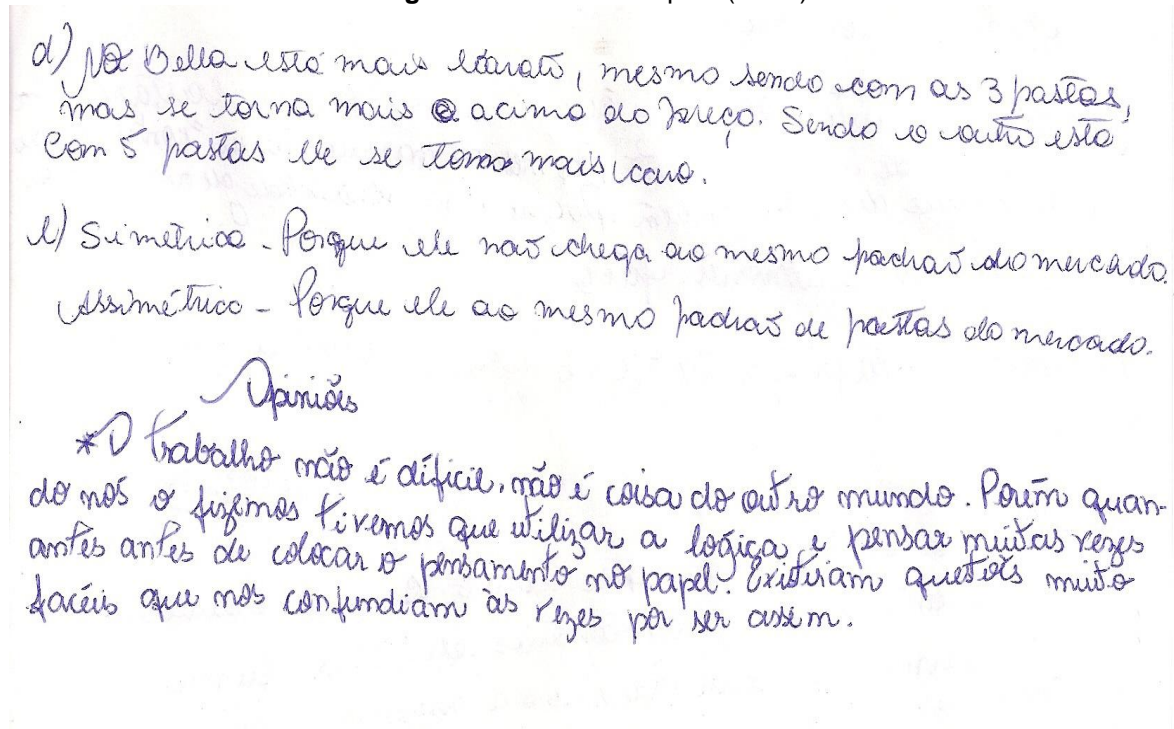 d) No Bella está mais barato, mesmo sendo com as 3 pastas,
mas se torna mais acima do preço. Sendo o outro está
com 5 pastas ele se torna mais caro.
e) Simétrica - Porque ele não chega ao mesmo padrão do mercado.
Assimétrico - Porque ele ao mesmo padrão de pastas do mercado.
Opiniões
*O trabalho não é díficil, não é coisa do outro mundo. Porém quan-
do nós o fizemos tivemos que utilizar a lógica e pensar muitas vezes
antes antes de colocar o pensamento no papel. Existiram quetões muito
facéis que nos confundiam às vezes por ser assim.